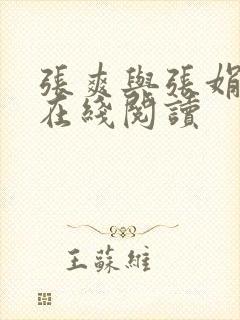 張爽與張娟
在綫閱讀
王蘇維